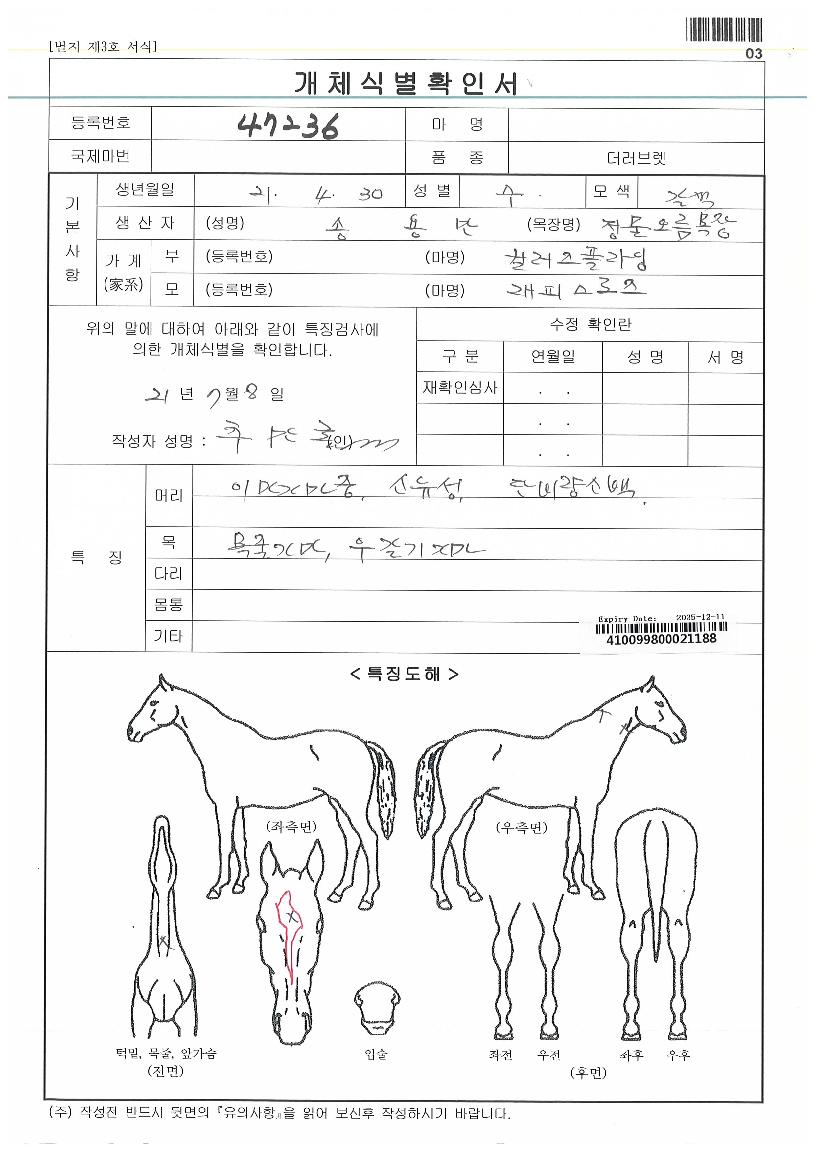 [별지 제3호 서식]
03
개체식별확인서
등록번호 47236 마 명
국제마번 품 종 더러브렛
기본사항
생년월일 21. 4. 30 성 별 수. 모 색 갈색
생 산 자 (성명) 송 용 (목장명) 정물오름목장
가 계 (家系)
부 (등록번호) (마명) 컬러즈플라잉
모 (등록번호) (마명) 래피스로즈
위의 말에 대하여 아래와 같이 특징검사에
의한 개체식별을 확인합니다.
21 년 7 월 8 일
작성자 성명 : (인)
수정 확인란
구 분 연월일 성 명 서 명
재확인심사 . .
. .
. .
특 징
머리 유성, 단비량신백.
목
다리
몸통
기타
Expiry Date: 2035-12-11
410099800021188
< 특징도해 >
(좌측면) (우측면)
턱밑, 목줄, 앞가슴
(전면)
입술
좌전 우전 좌후 우후
(후면)
(주) 작성전 반드시 뒷면의 『유의사항』을 읽어 보신후 작성하시기 바랍니다.